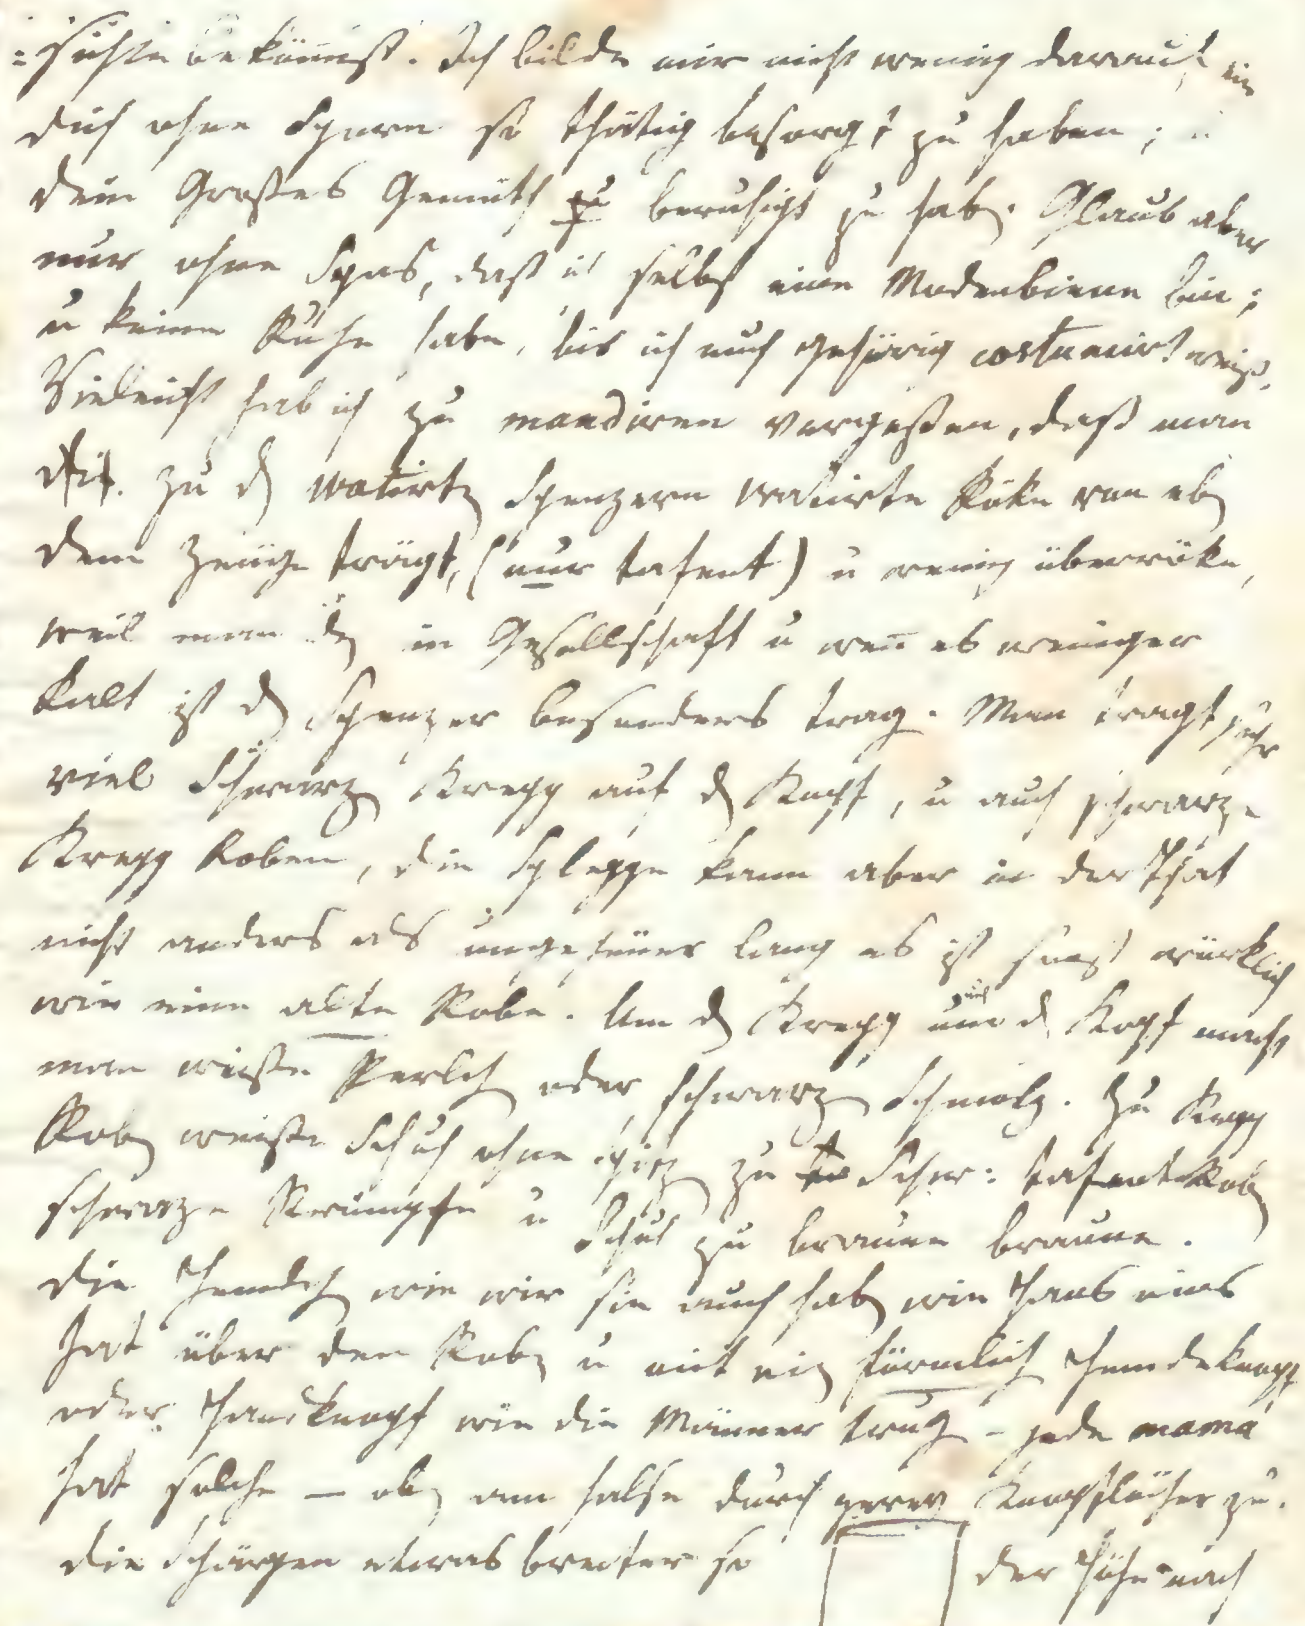 bekömst. Ich bilde mir nicht wenig darauf ein
dich ohne Sporn so thätig besorgt zu haben; u
dein Großes Gemüth zu beruhigt zu hab. Glaub aber
nur ohne Spas, daß ich selbst eine Modenbiene bin;
u keine Ruhe habe, bis ich euch gehörig costumirt weiß.
Vieleicht hab ich zu mandiren vergeßen, daß man
zu d watirt Spenzern watirte Röke von eb
dem Zeuge trägt, (nur tafent) u wenig überröke,
weil man in Gesellschaft u wen̄ es weniger
kalt ist d Spenzer besonders trag. Man tragt sehr
viel Schwarz Krepp auf d Kopf, u auch schwarze
Krepp Roben, die Schleppe kann aber in der That
nicht anders als ungeheuer lang es ist sonst würklich
wie eine alte Robe. Um d Krepp und d Kopf macht
man weiße Perlch oder schwarz Schmelz. Zu Krepp
Rob weiße Schuh ohne Spitz zu Schw: tafent Rob
schwarze Strümpfe u Schuh zu braune braune.
Die Hemdch wie wir sie auch hab wie Hans eins
hat über den Rob u mit ein förmlich Hemdeknopf
oder Handknopf wie die Männer trug - jede mama
hat solche — ob am Halse durch zwey Knopflöcher zu.
Die Schürzen etwas breiter so der Höhe nach